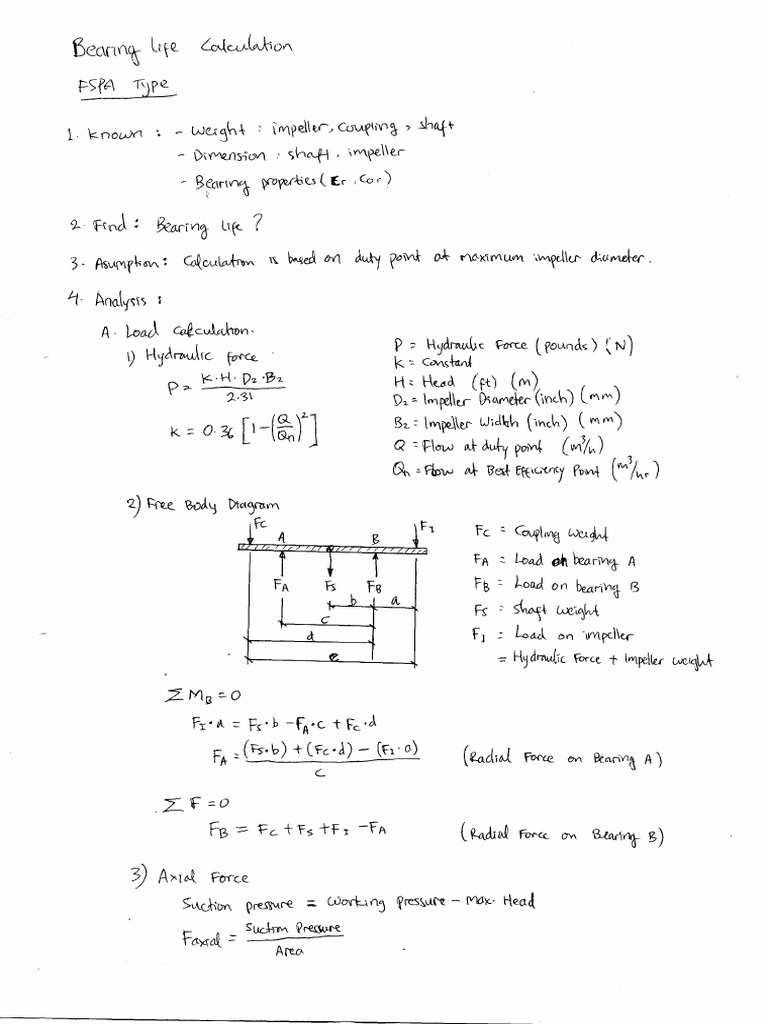 Bearing Life Calculation
FSPA Type
1. Known : - Weight : impeller, coupling, shaft
- Dimension : shaft, impeller
- Bearing properties (Er, Cor)
2. Find : Bearing Life ?
3. Asumption : Calculation is based on duty point at maximum impeller diameter.
4. Analysis :
A. Load Calculation.
1) Hydraulic force
P = K·H·D2·B2 / 2.31
K = 0.36 [1-(Q/Qn)^2]
P = Hydraulic Force (pounds) (N)
K = Constant
H = Head (ft) (m)
D2 = Impeller Diameter (inch) (mm)
B2 = Impeller Width (inch) (mm)
Q = Flow at duty point (m³/h)
Qn = Flow at Best Efficiency Point (m³/hr)
2) Free Body Diagram
Fc A B FI
FA Fs FB
b a
c
d
e
Fc = Coupling Weight
FA = Load on bearing A
FB = Load on bearing B
Fs = Shaft Weight
FI = Load on impeller
= Hydraulic Force + Impeller Weight
ΣMB = 0
FI·a = Fs·b - FA·c + Fc·d
FA = (Fs·b) + (Fc·d) - (FI·a) / c (Radial Force on Bearing A)
ΣF = 0
FB = Fc + Fs + FI - FA (Radial Force on Bearing B)
3) Axial Force
Suction pressure = Working Pressure - Max. Head
Faxial = Suction Pressure / Area